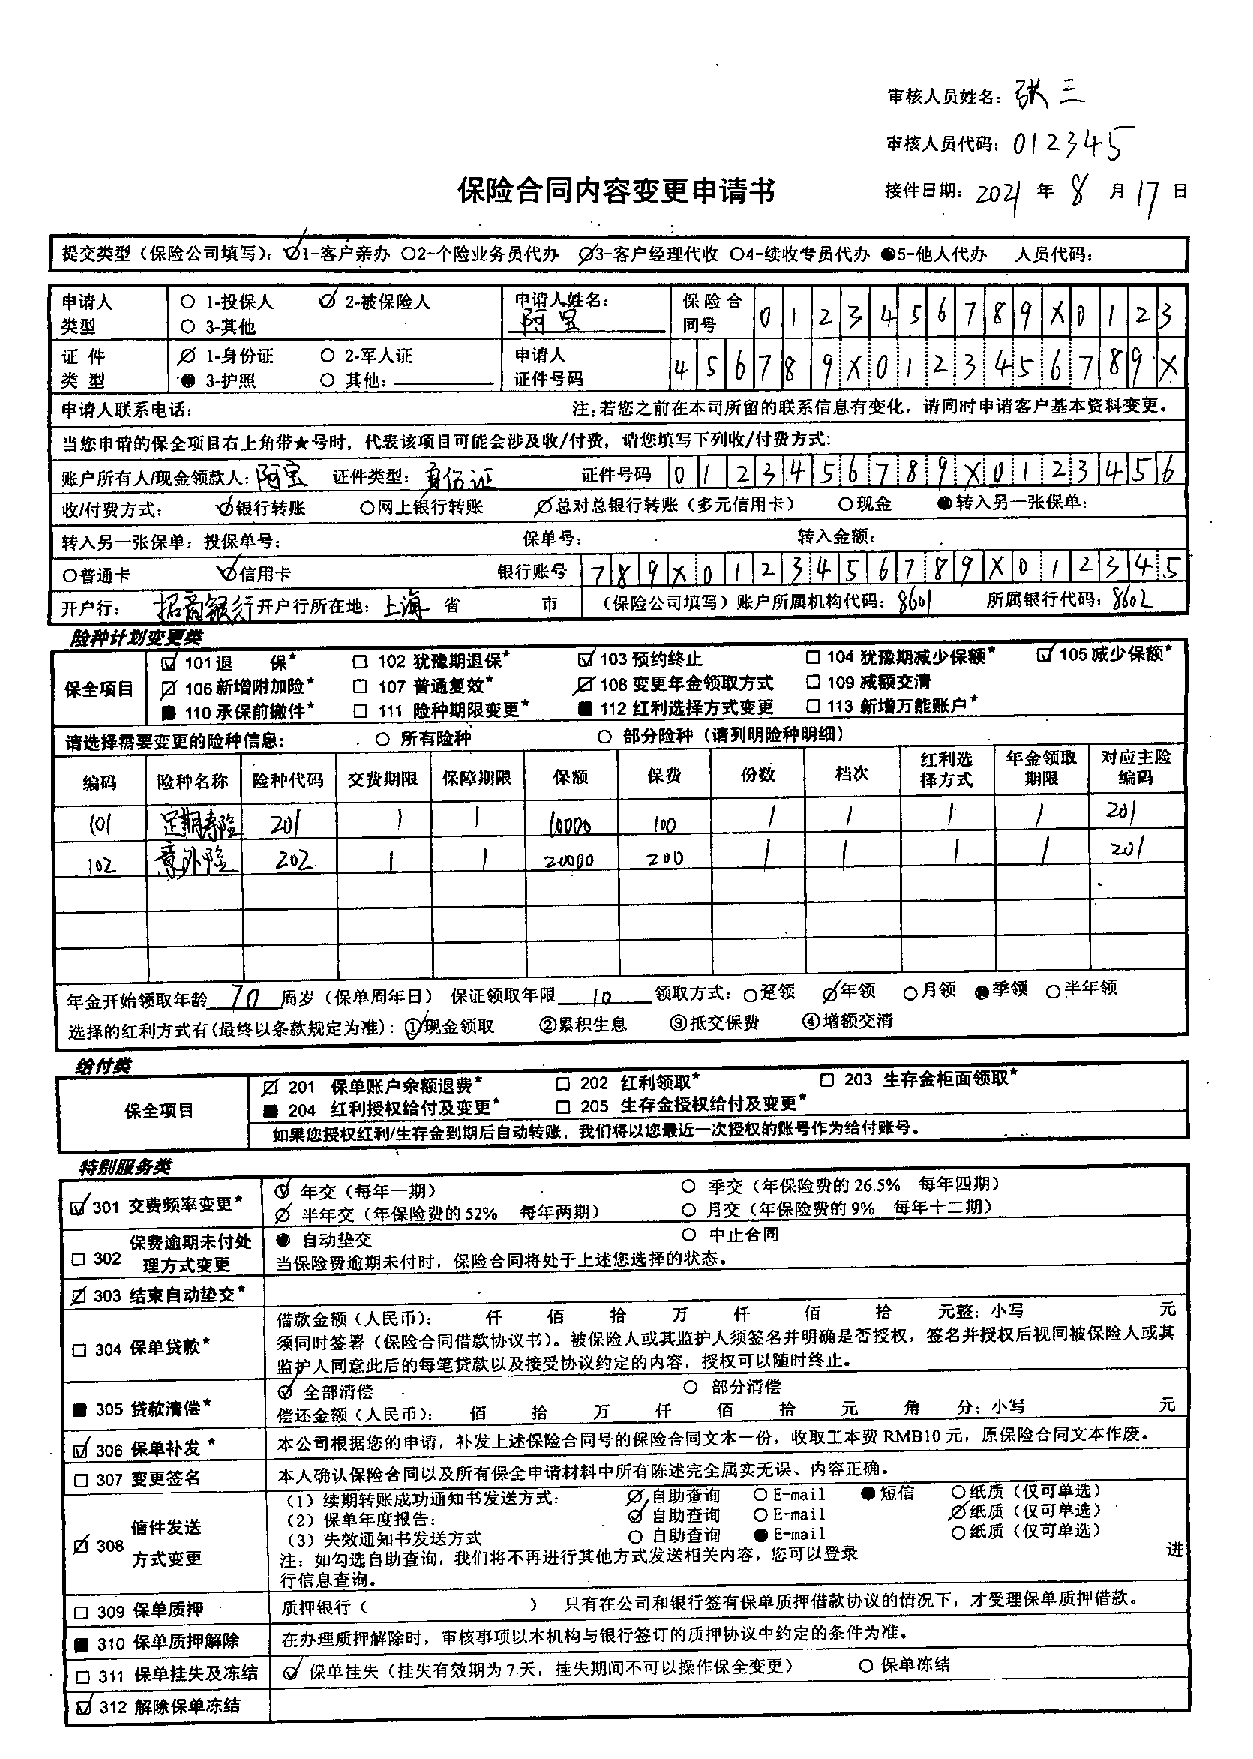 审核人员姓名：张三
审核人员代码：012345
保险合同内容变更申请书 接件日期：2021 年 8 月 17 日
提交类型（保险公司填写）：☑1-客户亲办 ○2-个险业务员代办 ∅3-客户经理代收 ○4-续收专员代办 ●5-他人代办 人员代码：
申请人类型 ○ 1-投保人 ∅ 2-被保险人 申请人姓名：阿宝 保险合同号 0123456789X0123
○ 3-其他
证件类型 ∅ 1-身份证 ○ 2-军人证 申请人证件号码 456789X0123456789X
● 3-护照 ○ 其他：
申请人联系电话： 注：若您之前在本司所留的联系信息有变化，请同时申请客户基本资料变更。
当您申请的保全项目右上角带★号时，代表该项目可能会涉及收/付费，请您填写下列收/付费方式：
账户所有人/现金领款人：阿宝 证件类型：身份证 证件号码 0123456789X0123456
收/付费方式： ☑银行转账 ○网上银行转账 ∅总对总银行转账（多元信用卡） ○现金 ●转入另一张保单：
转入另一张保单：投保单号： 保单号： 转入金额：
○普通卡 ☑信用卡 银行账号 789X0123456789X012345
开户行：招商银行 开户行所在地：上海 省 市 （保险公司填写）账户所属机构代码：8601 所属银行代码：8602
险种计划变更类
保全项目
☑ 101 退 保★ □ 102 犹豫期退保★ ☑ 103 预约终止 □ 104 犹豫期减少保额★ ☑ 105 减少保额★
☑ 106 新增附加险★ □ 107 普通复效★ ☑ 108 变更年金领取方式 □ 109 减额交清
■ 110 承保前撤件★ □ 111 险种期限变更★ ■ 112 红利选择方式变更 □ 113 新增万能账户★
请选择需要变更的险种信息： ○ 所有险种 ○ 部分险种（请列明险种明细）
编码 险种名称 险种代码 交费期限 保障期限 保额 保费 份数 档次 红利选择方式 年金领取期限 对应主险编码
101 定期寿险 201 1 1 10000 100 1 1 1 1 201
102 意外险 202 1 1 20000 200 1 1 1 1 201
年金开始领取年龄 70 周岁（保单周年日） 保证领取年限 10 领取方式：○趸领 ∅年领 ○月领 ●季领 ○半年领
选择的红利方式有(最终以条款规定为准)：①现金领取 ②累积生息 ③抵交保费 ④增额交清
给付类
保全项目
☑ 201 保单账户余额退费★ □ 202 红利领取★ □ 203 生存金柜面领取★
■ 204 红利授权给付及变更★ □ 205 生存金授权给付及变更★
如果您授权红利/生存金到期后自动转账，我们将以您最近一次授权的账号作为给付账号。
特别服务类
☑ 301 交费频率变更★ ☑ 年交（每年一期） ○ 季交（年保险费的26.5% 每年四期）
∅ 半年交（年保险费的52% 每年两期） ○ 月交（年保险费的9% 每年十二期）
□ 302 保费逾期未付处理方式变更 ● 自动垫交 ○ 中止合同
当保险费逾期未付时，保险合同将处于上述您选择的状态。
☑ 303 结束自动垫交★
□ 304 保单贷款★ 借款金额（人民币）： 仟 佰 拾 万 仟 佰 拾 元整：小写 元
须同时签署（保险合同借款协议书）。被保险人或其监护人须签名并明确是否授权，签名并授权后视同被保险人或其
监护人同意此后的每笔贷款以及接受协议约定的内容，授权可以随时终止。
■ 305 贷款清偿★ ☑ 全部清偿 ○ 部分清偿
偿还金额（人民币）： 佰 拾 万 仟 佰 拾 元 角 分：小写 元
☑ 306 保单补发★ 本公司根据您的申请，补发上述保险合同号的保险合同文本一份，收取工本费RMB10元，原保险合同文本作废。
□ 307 变更签名 本人确认保险合同以及所有保全申请材料中所有陈述完全属实无误、内容正确。
☑ 308 信件发送方式变更 （1）续期转账成功通知书发送方式： ∅自助查询 ○ E-mail ●短信 ○纸质（仅可单选）
（2）保单年度报告： ☑自助查询 ○ E-mail ∅纸质（仅可单选）
（3）失效通知书发送方式 ○ 自助查询 ● E-mail ○纸质（仅可单选）
注：如勾选自助查询，我们将不再进行其他方式发送相关内容，您可以登录 进
行信息查询。
□ 309 保单质押 质押银行（ ） 只有在公司和银行签有保单质押借款协议的情况下，才受理保单质押借款。
■ 310 保单质押解除 在办理质押解除时，审核事项以本机构与银行签订的质押协议中约定的条件为准。
□ 311 保单挂失及冻结 ☑ 保单挂失（挂失有效期为7天，挂失期间不可以操作保全变更） ○ 保单冻结
☑ 312 解除保单冻结